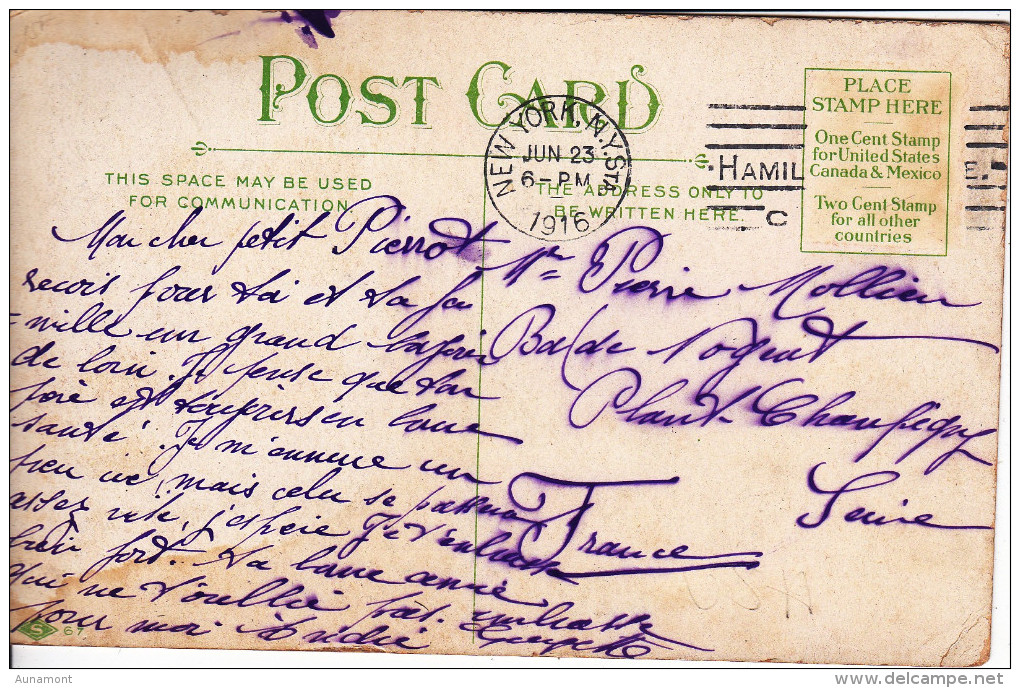 POST CARD
THIS SPACE MAY BE USED
FOR COMMUNICATION
THE ADDRESS ONLY TO
BE WRITTEN HERE.
NEW YORK, N.Y. STA
JUN 23
6-PM
1916
HAMIL
E.
C
PLACE
STAMP HERE
One Cent Stamp
for United States
Canada & Mexico
Two Cent Stamp
for all other
countries
Mon cher petit Pierrot
reçois pour toi et ta fa
-mille un grand
de loin. Je pense que ton
est toujours en bonne
santé. Je m'ennuie un
peu ici, mais cela se passera
assez vite, j'espère. Je t'embrasse
bien fort. Ta bonne amie
qui ne t'oublie pas. embrasse
pour moi
Mr Pierre Mollien
de Nogent
Plant Champigny
Seine
France
S
67
Aunamont
delcampe.net